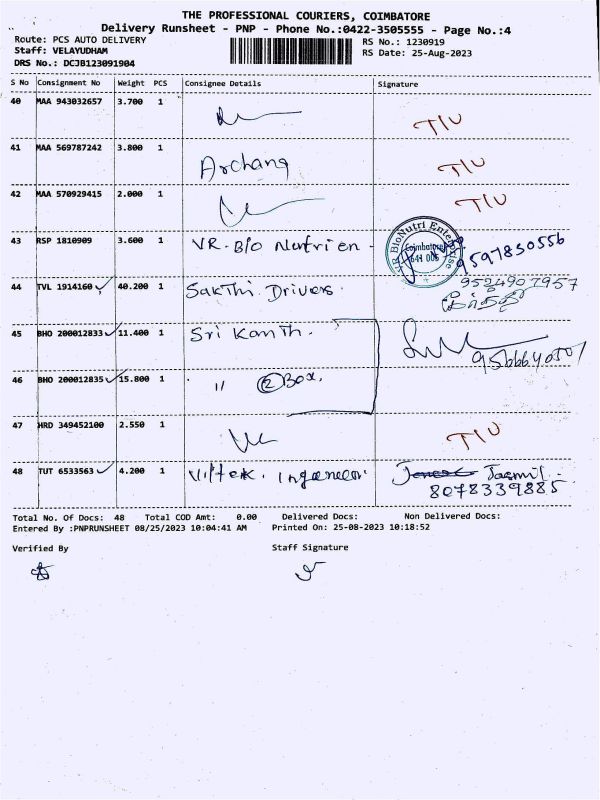 THE PROFESSIONAL COURIERS, COIMBATORE
Delivery Runsheet - PNP - Phone No.:0422-3505555 - Page No.:4
Route: PCS AUTO DELIVERY
RS No.: 1230919
Staff: VELAYUDHAM
RS Date: 25-Aug-2023
DRS No.: DCJB123091904
S No Consignment No Weight PCS Consignee Details Signature
40 MAA 943032657 3.700 1 T/U
41 MAA 569787242 3.800 1 Archana T/U
42 MAA 570929415 2.000 1 T/U
43 RSP 1810909 3.600 1 V.R. Bio Nutrien - 9597830556
VR BioNutri Enterprise
Coimbatore
641 006
44 TVL 1914160 40.200 1 Sakthi Drives 9524907957
45 BHO 200012833 11.400 1 Sri Kanth.
46 BHO 200012835 15.800 1 " 2 Box.
47 HRD 349452100 2.550 1 T/U
48 TUT 6533563 4.200 1 Jasmil
8078339885
Total No. Of Docs: 48 Total COD Amt: 0.00 Delivered Docs: Non Delivered Docs:
Entered By :PNPRUNSHEET 08/25/2023 10:04:41 AM Printed On: 25-08-2023 10:18:52
Verified By Staff Signature